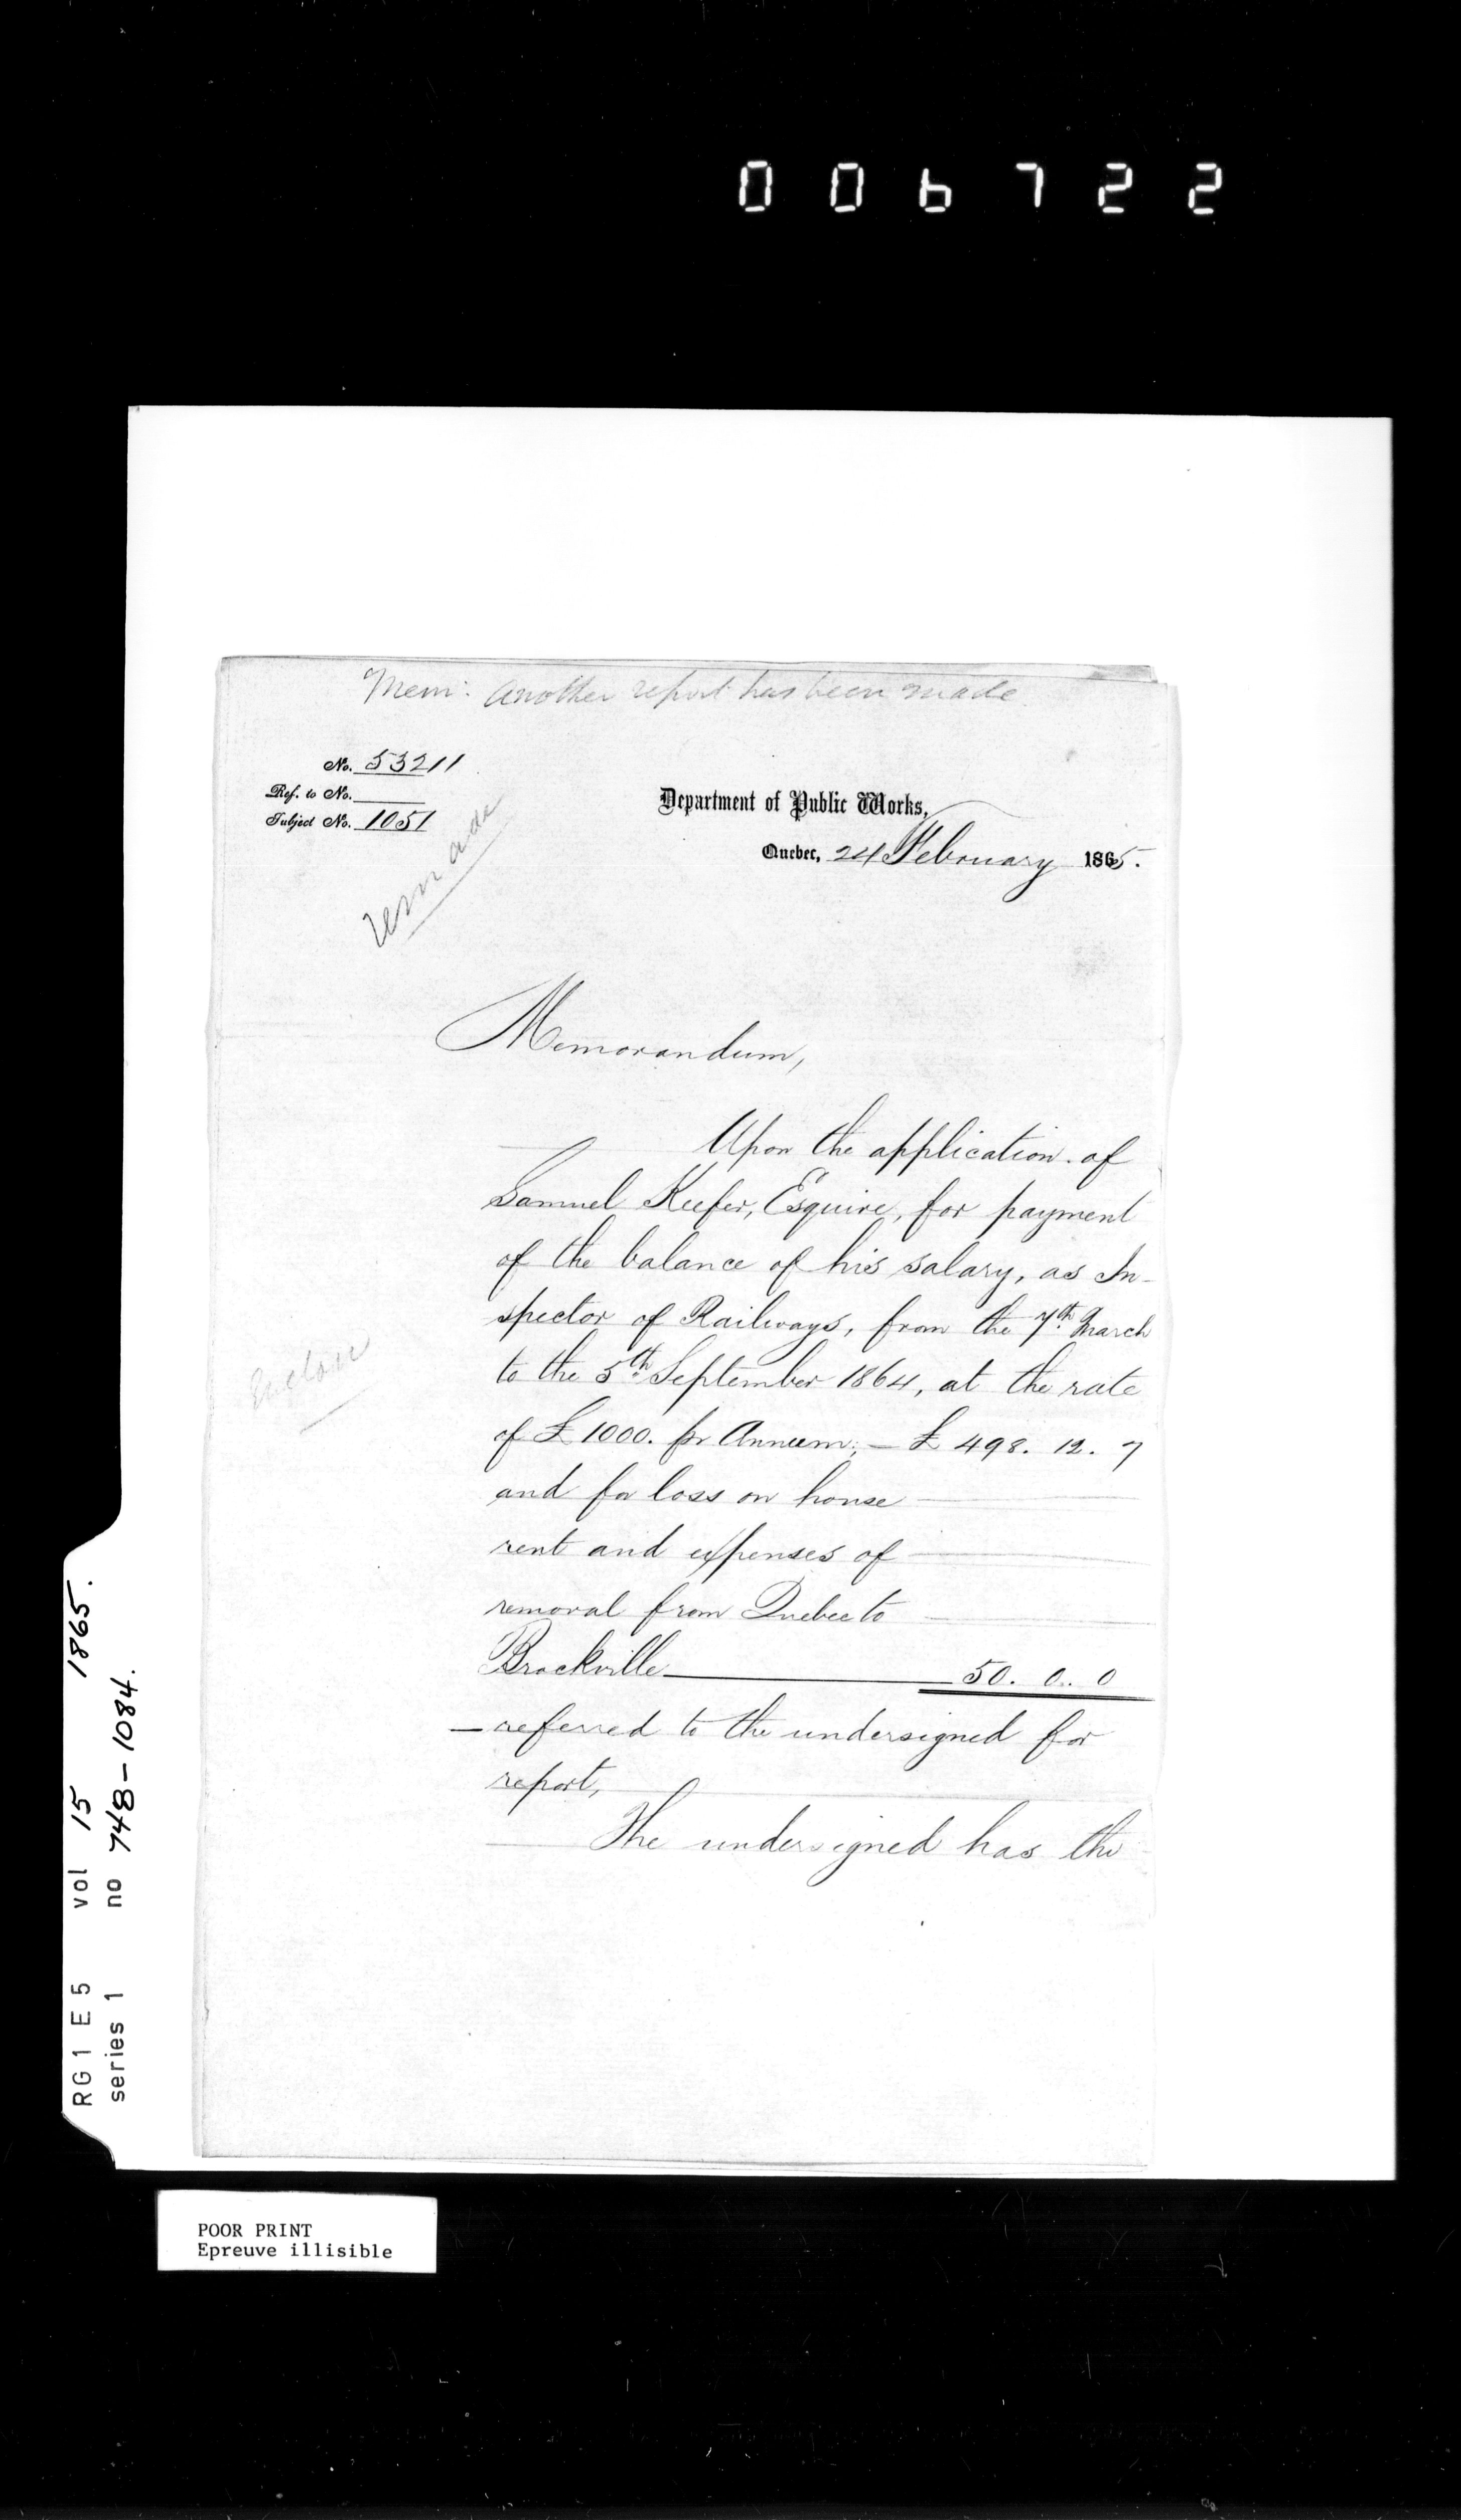 006722
Mem: Another report has been made
No. 53211
Ref. to No.
Subject No. 1051
Department of Public Works,
Quebec, 24 February 1865.
Memorandum,
Upon the application of
Samuel Keefer, Esquire, for payment
of the balance of his salary, as In-
spector of Railways, from the 7th March
to the 5th September 1864, at the rate
of £1000. pr Annum; — £ 498. 12. 7
and for loss on house
rent and expenses of
removal from Quebec to
Brockville 50. 0. 0
— referred to the undersigned for
report,
The undersigned has the
RG 1 E 5 vol 15 1865.
series 1 no 748-1084.
POOR PRINT
Epreuve illisible